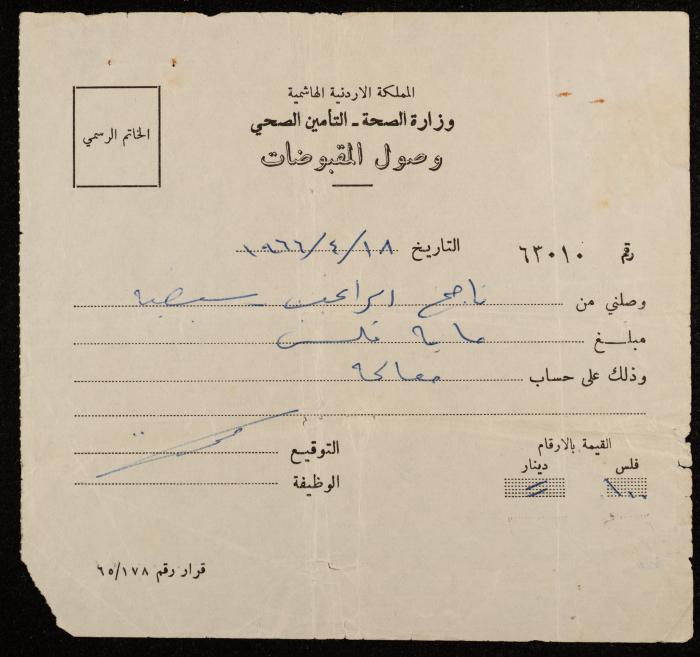 المملكة الاردنية الهاشمية
وزارة الصحة - التأمين الصحي
وصول المقبوضات
الخاتم الرسمي
رقم ٦٣٠١٠ التاريخ ١٩٦٦/٤/١٨
وصلني من ناجح
مبلغ ماية فلس
وذلك على حساب معالجة
القيمة بالارقام
فلس دينار
١٠٠
التوقيع
الوظيفة
قرار رقم ٦٥/١٧٨